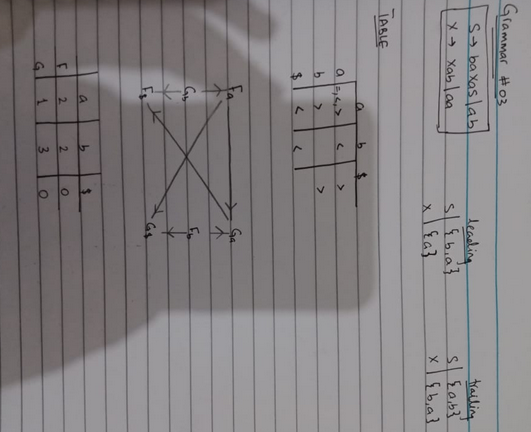 Grammar #03
S → baXas | ab
X → Xab | aa
Leading
S | {b,a}
X | {a}
Trailing
S | {a,b}
X | {b,a}
TABLE
a b $
a =,<,> < >
b > >
$ < <
Fa Ga
Gb Fb
F$ G$
a b $
F 2 2 0
G 1 3 0